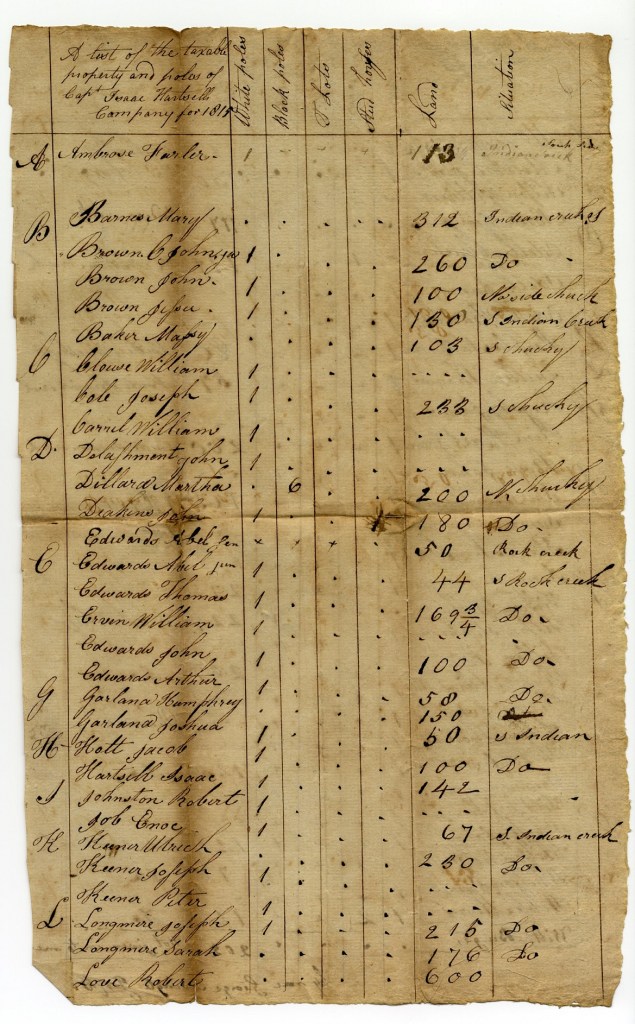 A list of the taxable
property and poles of
Capt Isaac Hartsells
Company for 1815
White poles
Black poles
T Lots
Stud horses
Land
Situation
A Ambrose Farler 1 113 Indian creek
B Barnes Mary . . . . 312 Indian creek S
Brown C John jur 1 . . . 260 Do
Brown John 1 . . . 100 N side chuck
Brown Jesse 1 . . . 130 S Indian Creek
Baker Massy . . . . 103 S chucky
C Clouse William 1 . . . ....
Cole Joseph 1 . . . 233 S chucky
Carrel William 1 . . . ....
D. Delashment John 1 . . . ....
Dillard Martha . 6 . . 200 N chucky
Deakins John 1 . . . 180 Do
Edwards Abel Sen x x x 50 Rock creek
E Edwards Abel jun 1 . . . 44 S Rock creek
Edwards Thomas 1 . . . 169 3/4 Do
Ervin William 1 . . . ....
Edwards John 1 . . . 100 Do
Edwards Arthur 1 . . . 58 Do
G Garland Humphrey 1 . . . 150
Garland Joshua 1 . . . 50 S Indian
H Holt Jacob 1 . . . 100 Do
Hartsell Isaac 1 . . . 142
J Johnston Robert 1 . . . ....
Job Enoc 1 . . . 67 S. Indian creek
K Keener Ulrich . . . . 230 Do
Keener Joseph 1 . . . ....
Keener Peter 1 . . . ....
L Longmire Joseph 1 . . . 215 Do
Longmire Sarah . . . . 176 Do
Love Robert . . . . 600